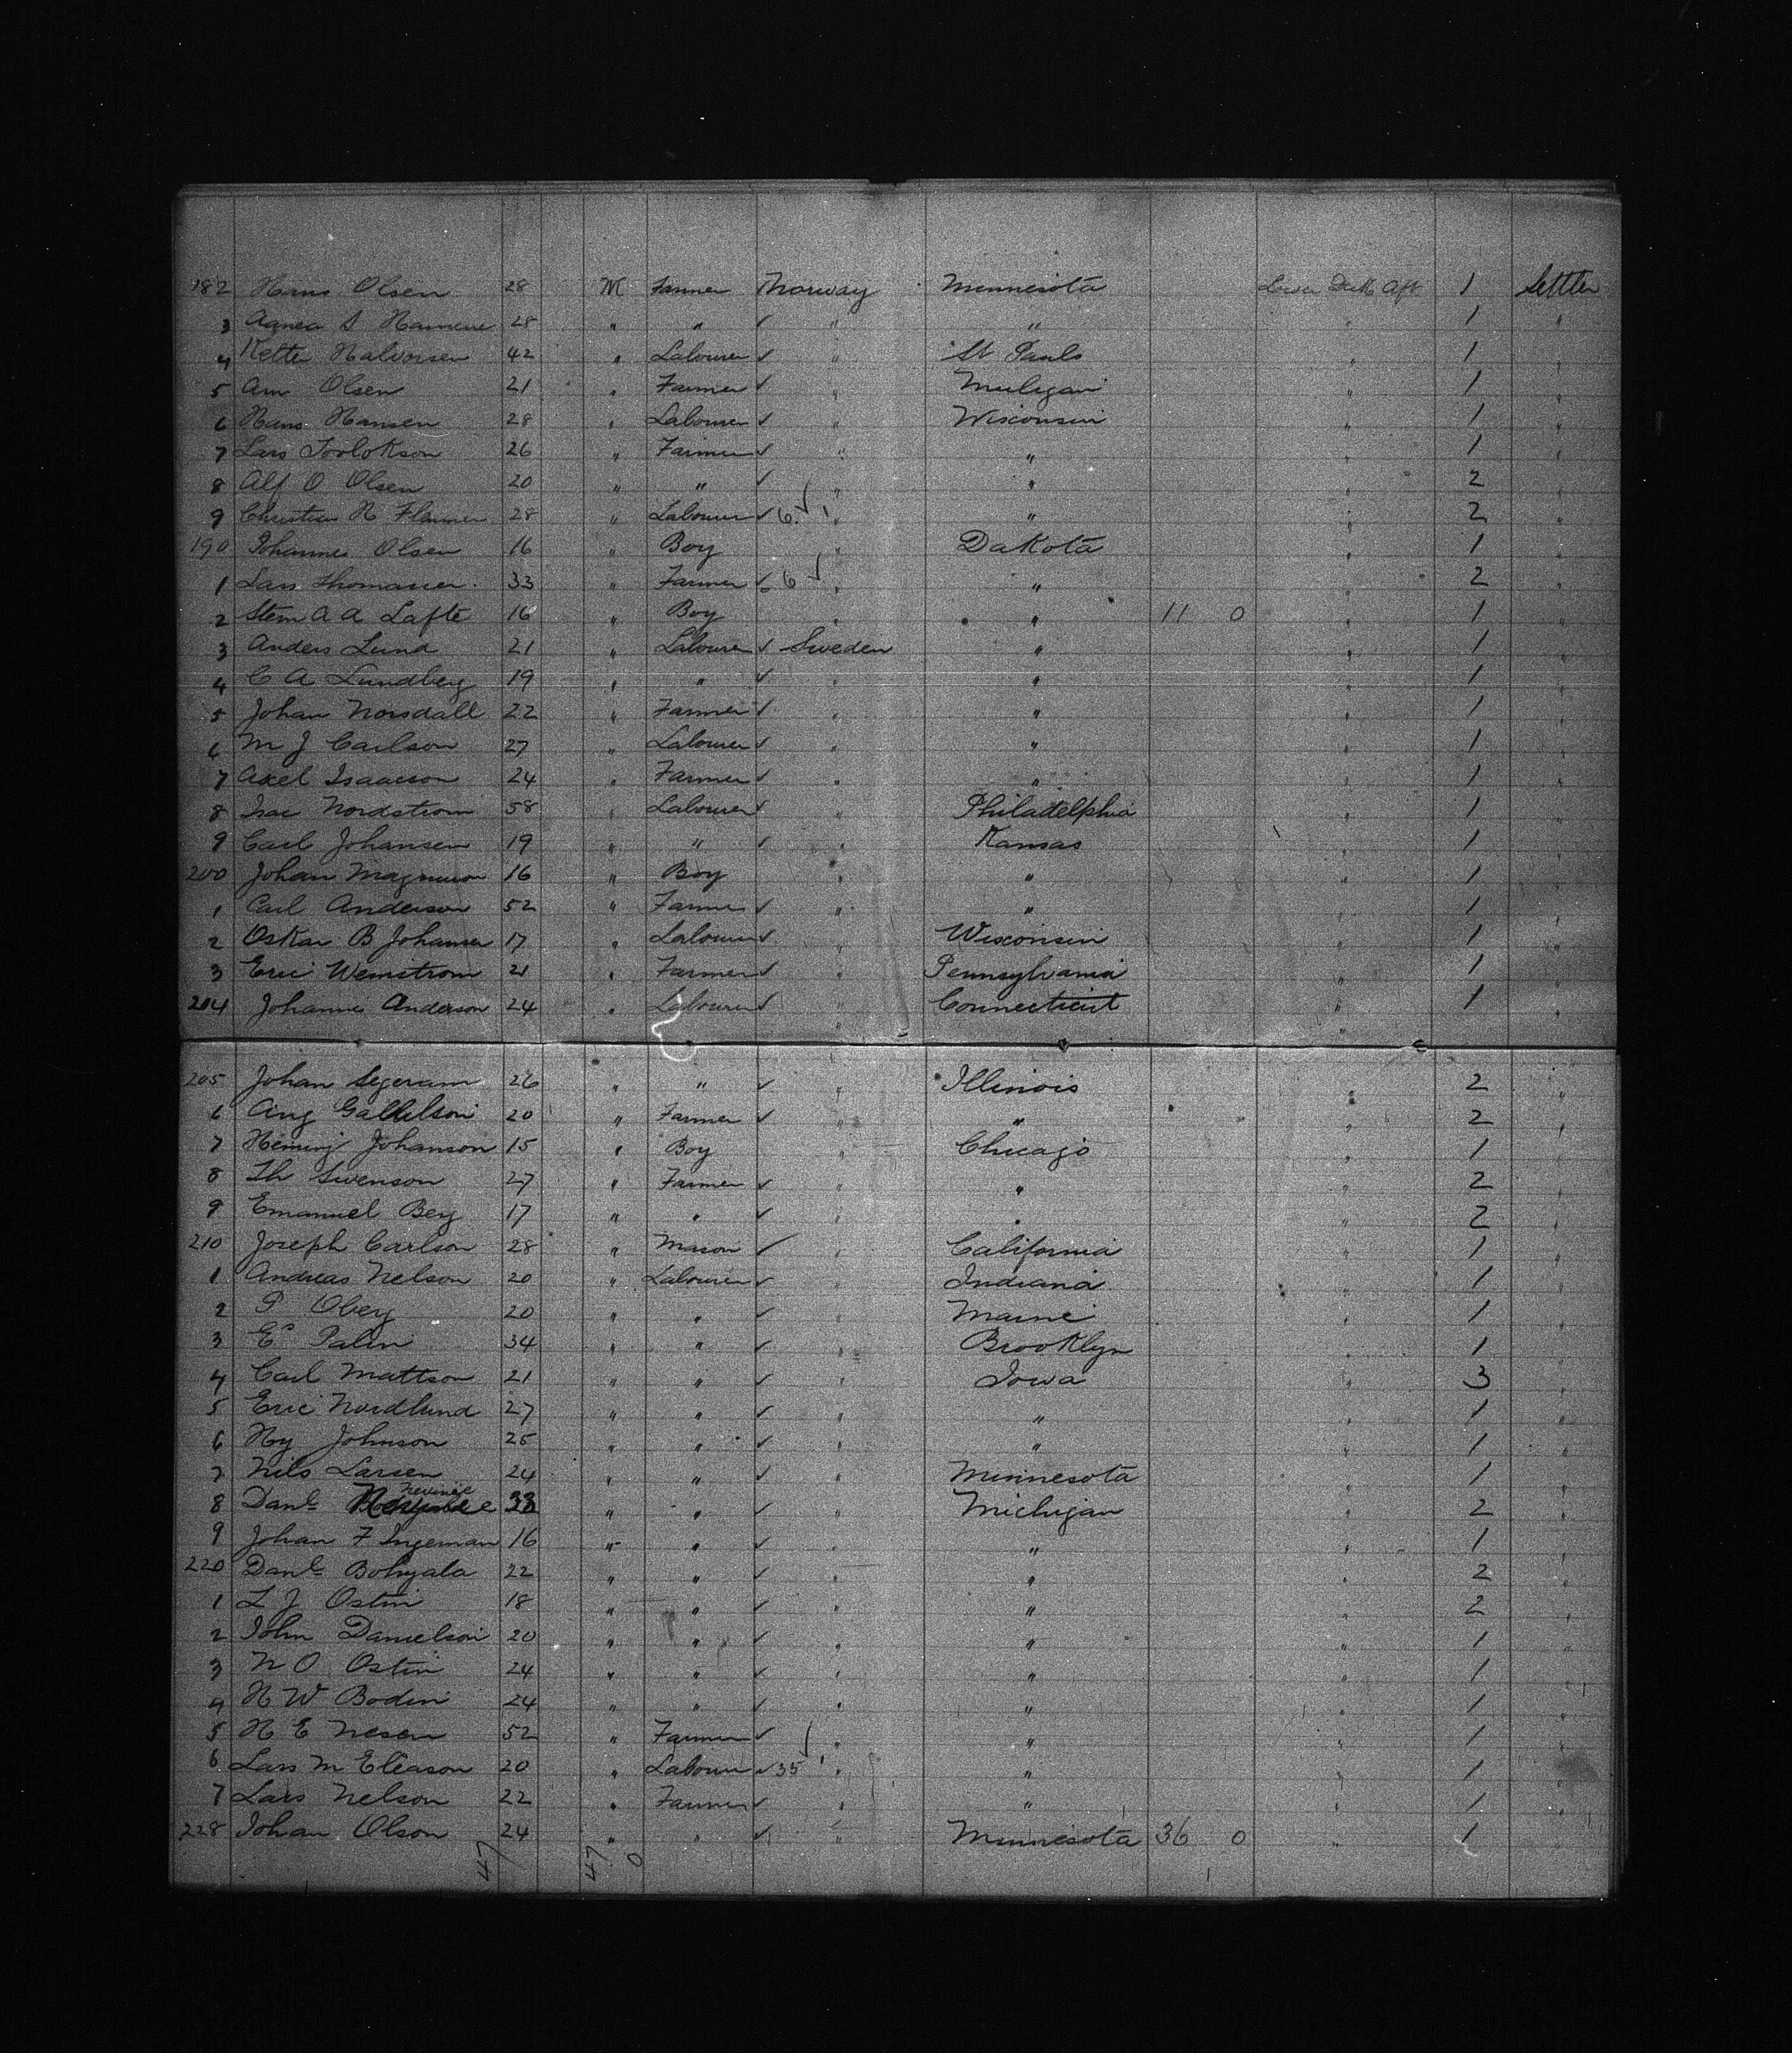 182 Hans Olsen 28 M Farmer Norway Minnesota Lower Deck Aft 1 Settler
3 Agnea S 28 " " " " " 1 "
4 Kette Halvorsen 42 " Labourer " St Pauls " 1 "
5 Arn Olsen 21 " Farmer " " 1 "
6 Hans Hansen 28 " Labourer " Wisconsin " 1 "
7 Lars 26 " Farmer " " " 1 "
8 Alf O Olsen 20 " " " " " 2 "
9 Christian H 28 " Labourer 6 " " " 2 "
190 Johannes Olsen 16 " Boy " Dakota " 1 "
1 Lars Thomasen 33 " Farmer 6 " " " 2 "
2 Sten A A Lafte 16 " Boy " 11 0 " 1 "
3 Anders Lund 21 " Labourer Sweden " " 1 "
4 C A Lundberg 19 " " " " " 1 "
5 Johan Norsdall 22 " Farmer " " " 1 "
6 M J Carlson 27 " Labourer " " " 1 "
7 Axel Isaacson 24 " Farmer " " " 1 "
8 Isac Nordstrom 58 " Labourer " Philadelphia " 1 "
9 Carl Johansen 19 " " " Kansas " 1 "
200 Johan Magnuson 16 " Boy " " " 1 "
1 Carl Anderson 52 " Farmer " " " 1 "
2 Oskar B Johansen 17 " Labourer " Wisconsin " 1 "
3 Eric Wemstrom 21 " Farmer " Pennsylvania " 1 "
204 Johannes Anderson 24 " Labourer " Connecticut " 1 "
205 Johan Segeram 26 " " " Illinois " 2 "
6 Aug 20 " Farmer " " " 2 "
7 Johanson 15 " Boy " Chicago " 1 "
8 Th Swenson 27 " Farmer " " " 2 "
9 Emanuel Berg 17 " " " " " 2 "
210 Joseph Carlson 28 " Mason " California " 1 "
1 Andreas Nelson 20 " Labourer " Indiana " 1 "
2 P Oberg 20 " " " Maine " 1 "
3 E Palin 34 " " " Brooklyn " 1 "
4 Carl Mattson 21 " " " Iowa " 3 "
5 Eric Nordlund 27 " " " " " 1 "
6 Hy Johnson 25 " " " " " 1 "
7 Nils Larsen 24 " " " Minnesota " 1 "
8 Danl " " " Michigan " 2 "
9 Johan F Ingeman 16 " " " " " 1 "
220 Danl Bohyala 22 " " " " " 2 "
1 L J Ostin 18 " " " " " 2 "
2 John Danielson 20 " " " " " 1 "
3 N O Ostin 24 " " " " " 1 "
4 H W Bodin 24 " " " " " 1 "
5 H E Nesen 52 " Farmer " " " 1 "
6 Lars M Eleason 20 " Labourer 35 " " " 1 "
7 Lars Nelson 22 " Farmer " " " 1 "
228 Johan Olson 24 " " " Minnesota 36 0 " 1 "
47 47 0